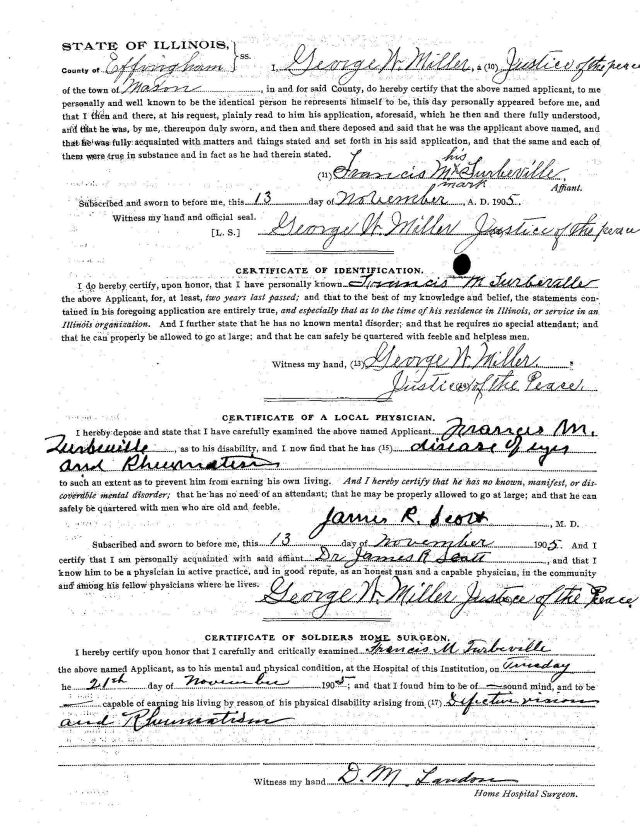 STATE OF ILLINOIS, } ss.
County of Effingham I, George W. Miller, a (10) Justice of the peace
of the town of Mason, in and for said County, do hereby certify that the above named applicant, to me
personally and well known to be the identical person he represents himself to be, this day personally appeared before me, and
that I then and there, at his request, plainly read to him his application, aforesaid, which he then and there fully understood,
and that he was, by me, thereupon duly sworn, and then and there deposed and said that he was the applicant above named, and
that he was fully acquainted with matters and things stated and set forth in his said application, and that the same and each of
them were true in substance and in fact as he had therein stated.
his
(11) Francis M x Turbeville
mark Affiant.
Subscribed and sworn to before me, this 13 day of November, A. D. 1905.
Witness my hand and official seal.
[L. S.] George W. Miller Justice of the peace
CERTIFICATE OF IDENTIFICATION.
I do hereby certify, upon honor, that I have personally known Francis M Turbeville
the above Applicant, for, at least, two years last passed; and that to the best of my knowledge and belief, the statements con-
tained in his foregoing application are entirely true, and especially that as to the time of his residence in Illinois, or service in an
Illinois organization. And I further state that he has no known mental disorder; and that he requires no special attendant; and
that he can properly be allowed to go at large; and that he can safely be quartered with feeble and helpless men.
Witness my hand, (13) George W Miller
Justice of the Peace.
CERTIFICATE OF A LOCAL PHYSICIAN.
I hereby depose and state that I have carefully examined the above named Applicant Francis M.
Turbeville, as to his disability, and I now find that he has (15) disease of eyes
and Rheumatism
to such an extent as to prevent him from earning his own living. And I hereby certify that he has no known, manifest, or dis-
coverable mental disorder; that he has no need of an attendant; that he may be properly allowed to go at large; and that he can
safely be quartered with men who are old and feeble.
James R. Scott, M. D.
Subscribed and sworn to before me, this 13 day of November 1905. And I
certify that I am personally acquainted with said affiant Dr James R Scott, and that I
know him to be a physician in active practice, and in good repute, as an honest man and a capable physician, in the community
and among his fellow physicians where he lives.
George W. Miller Justice of the Peace
CERTIFICATE OF SOLDIERS HOME SURGEON.
I hereby certify upon honor that I carefully and critically examined Francis M Turbeville
the above named Applicant, as to his mental and physical condition, at the Hospital of this Institution, on Tuesday
he 21st day of November 1905; and that I found him to be of — sound mind, and to be
— capable of earning his living by reason of his physical disability arising from (17) Defective vision
and Rheumatism
Witness my hand D. M. Landon
Home Hospital Surgeon.